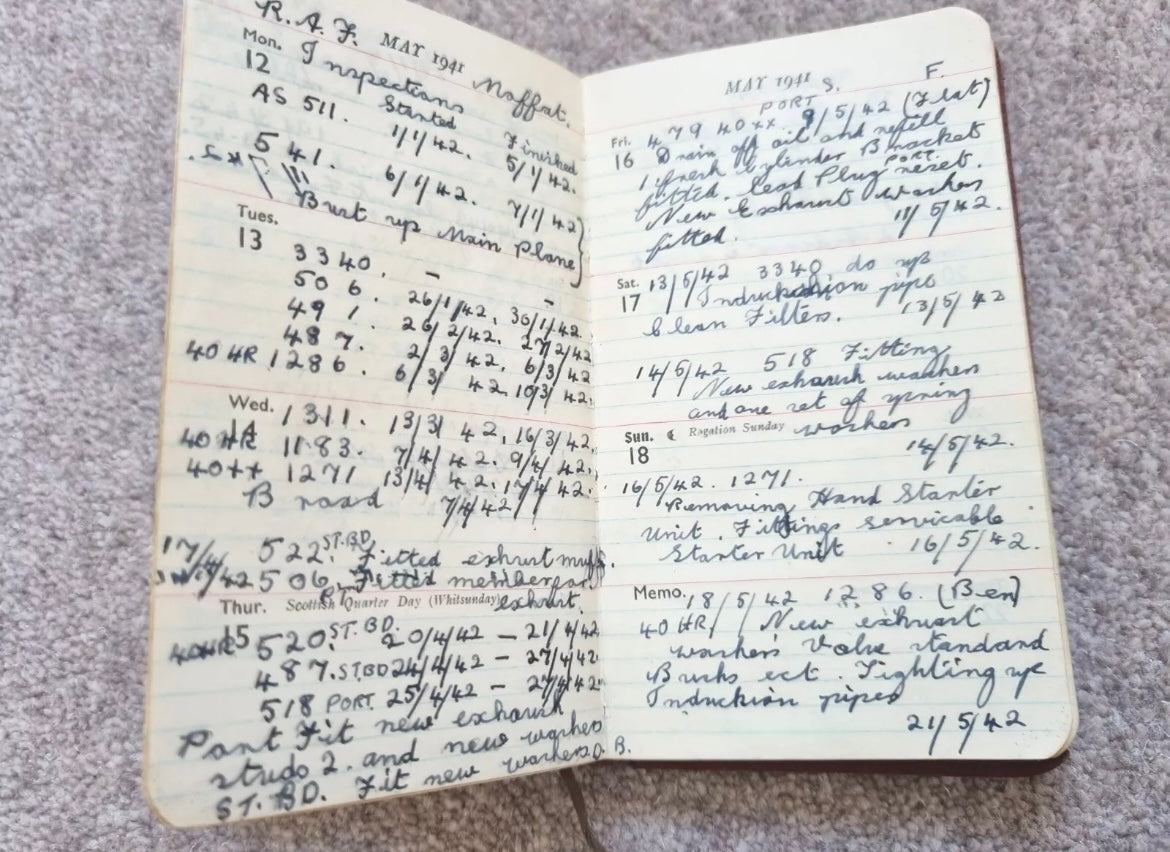 R.A.F. MAY 1941 Moffat.
Mon. Inspections
12 Started Finished
AS 511. 1/1/42. 5/1/42.
541. 6/1/42. 7/1/42
Burt up Main Plane
Tues.
13 3340. - -
506. 26/1/42. 30/1/42.
491. 26/2/42. 27/2/42
487. 2/3/42. 6/3/42
40 HR 1286. 6/3/42. 10/3/42.
Wed. 1311. 13/3/42, 16/3/42.
14
40 HR 1183. 7/4/42. 9/4/42.
40++ 1271 13/4/42. 17/4/42.
B road 7/4/42
17/4/ 522 ST.BD. Fitted exhurt
/42 506. Fitted
exhurt.
Thur. Scottish Quarter Day (Whitsunday)
15
40HR 520. ST. BD. 20/4/42 - 21/4/42
487. ST.BD 24/4/42 - 27/4/42
518 PORT. 25/4/42 - 27/4/42
Pont Fit new exhaush
studo 2. and new washers
ST. BD. Fit new washers O. B.
MAY 1941 S. F.
PORT
Fri. 479 40xx 9/5/42 (Flat)
16 Drain off oil and refill
1 fresh cylender Bracket
fitted. lead Plug PORT. reset.
New Exhaust washers
fitted. 11/5/42.
Sat. 13/5/42 3340 do up
17 Induckshion pipe
Clean Filters. 13/5/42
14/5/42 518 Fitting
New exhaush washers
and one set of spining
Sun. Rogation Sunday washers
18 14/5/42.
16/5/42. 1271.
Removing Hand Starter
Unit. Fittings servicable
Starter Unit 16/5/42.
Memo. 18/5/42 1286. (Ben)
40 HR/ New exhurst
washers Valve standand
Bushs ect. Tighting up
Induckion pipes
21/5/42